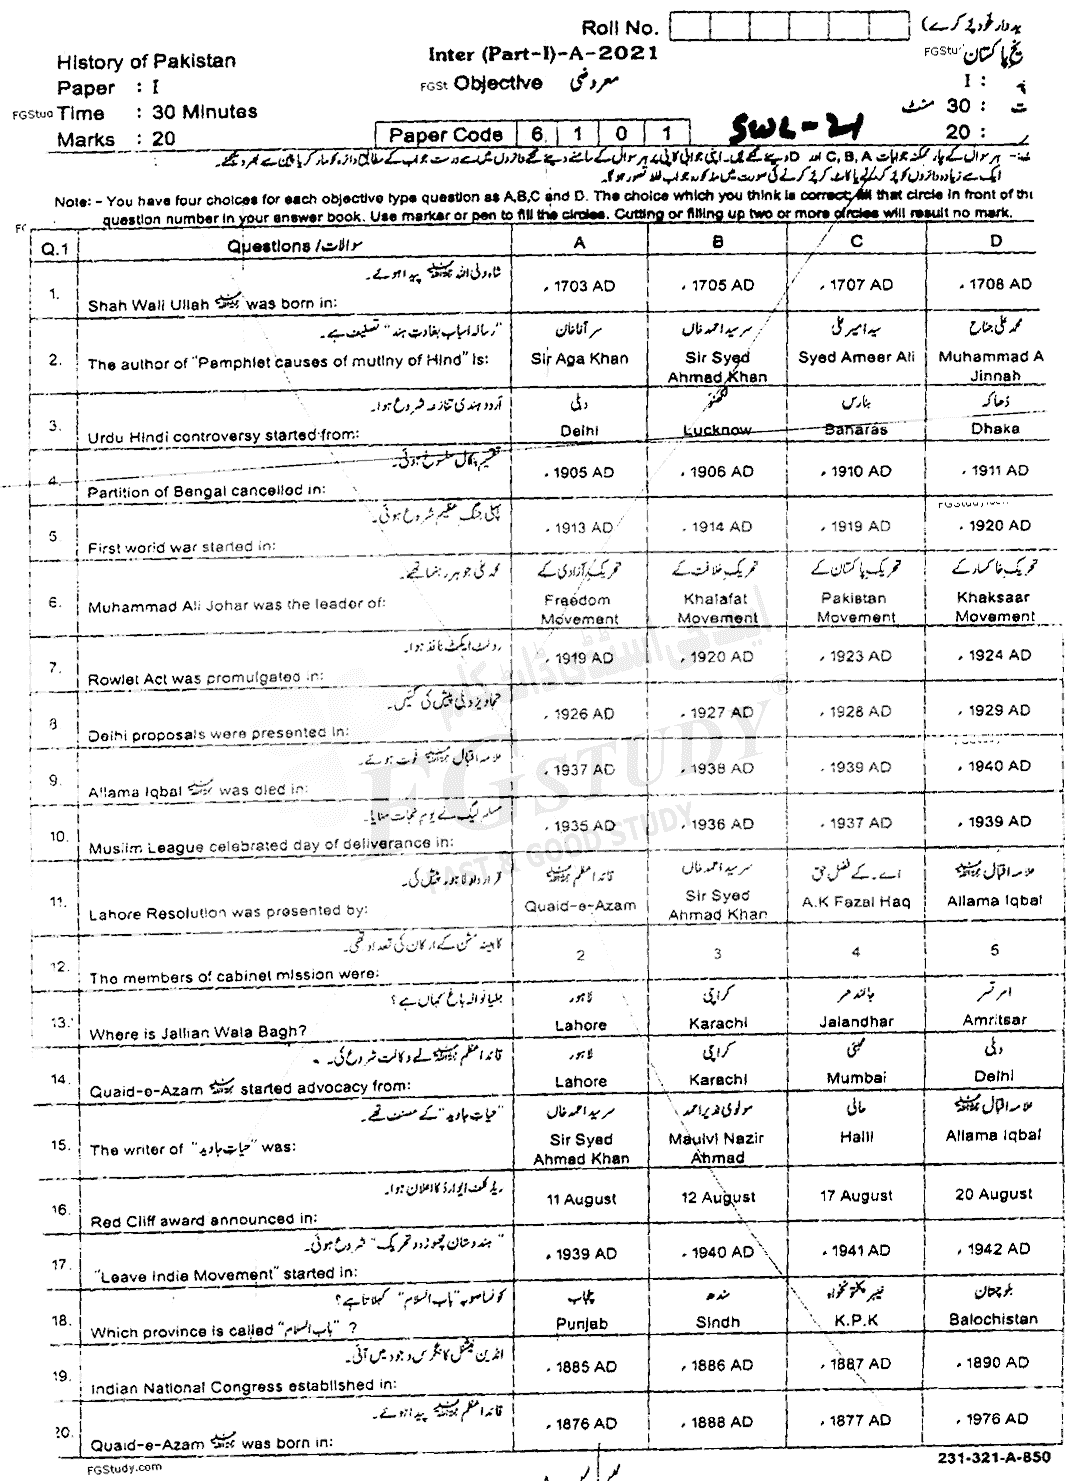 Roll No.
بدوار خود پُر کرے)
History of Pakistan
Inter (Part-I)-A-2021
FGStu
پاکستان
Paper : I
FGSt Objective معروضی
I :
FGStud Time : 30 Minutes
30 : منٹ
Marks : 20
Paper Code 6 1 0 1
SWL-21
20 :
Note: - You have four choices for each objective type question as A,B,C and D. The choice which you think is correct; fill that circle in front of that
question number in your answer book. Use marker or pen to fill the circles. Cutting or filling up two or more circles will result no mark.
Q.1 Questions / سوالات A B C D
شاہ ولی اللہ پیدا ہوئے۔
1. Shah Wali Ullah was born in: 1703 AD 1705 AD 1707 AD 1708 AD
"رسالہ اسباب بغاوت ہند" تصنیف ہے۔ سر آغا خان سر سید احمد خاں سید امیر علی محمد علی جناح
2. The author of "Pamphlet causes of mutiny of Hind" is: Sir Aga Khan Sir Syed Ahmad Khan Syed Ameer Ali Muhammad A Jinnah
اُردو ہندی تنازعہ شروع ہوا۔ دہلی لکھنؤ بنارس ڈھاکہ
3. Urdu Hindi controversy started from: Delhi Lucknow Banaras Dhaka
تقسیم بنگال منسوخ ہوئی۔
4. Partition of Bengal cancelled in: 1905 AD 1906 AD 1910 AD 1911 AD
پہلی جنگ عظیم شروع ہوئی۔
5 First world war started in: 1913 AD 1914 AD 1919 AD 1920 AD
محمد علی جوہر رہنما تھے۔ تحریک آزادی کے تحریک خلافت کے تحریک پاکستان کے تحریک خاکسار کے
6. Muhammad Ali Johar was the leader of: Freedom Movement Khalafat Movement Pakistan Movement Khaksaar Movement
رولٹ ایکٹ نافذ ہوا۔
7. Rowlet Act was promulgated in: 1919 AD 1920 AD 1923 AD 1924 AD
تجاویز دہلی پیش کی گئیں۔
8 Delhi proposals were presented in: 1926 AD 1927 AD 1928 AD 1929 AD
علامہ اقبال فوت ہوئے۔
9. Allama Iqbal was died in: 1937 AD 1938 AD 1939 AD 1940 AD
مسلم لیگ نے یوم نجات منایا۔
10. Muslim League celebrated day of deliverance in: 1935 AD 1936 AD 1937 AD 1939 AD
قرارداد لاہور پیش کی۔ قائد اعظم سر سید احمد خاں اے۔کے فضل حق علامہ اقبال
11. Lahore Resolution was presented by: Quaid-e-Azam Sir Syed Ahmad Khan A.K Fazal Haq Allama Iqbal
کابینہ مشن کے ارکان کی تعداد تھی۔
12. The members of cabinet mission were: 2 3 4 5
جلیانوالہ باغ کہاں ہے؟ لاہور کراچی جالندھر امرتسر
13. Where is Jallian Wala Bagh? Lahore Karachi Jalandhar Amritsar
قائد اعظم نے وکالت شروع کی۔ لاہور کراچی ممبئی دہلی
14. Quaid-e-Azam started advocacy from: Lahore Karachi Mumbai Delhi
"حیات جاوید" کے مصنف تھے۔ سر سید احمد خاں مولوی نذیر احمد حالی علامہ اقبال
15. The writer of "حیات جاوید" was: Sir Syed Ahmad Khan Maulvi Nazir Ahmad Hali Allama Iqbal
ریڈ کلف ایوارڈ کا اعلان ہوا۔
16. Red Cliff award announced in: 11 August 12 August 17 August 20 August
"ہندوستان چھوڑ دو تحریک" شروع ہوئی۔
17. "Leave India Movement" started in: 1939 AD 1940 AD 1941 AD 1942 AD
کونسا صوبہ "باب السلام" کہلاتا ہے؟ پنجاب سندھ خیبر پختونخواہ بلوچستان
18. Which province is called "باب السلام" ? Punjab Sindh K.P.K Balochistan
انڈین نیشنل کانگرس وجود میں آئی۔
19. Indian National Congress established in: 1885 AD 1886 AD 1887 AD 1890 AD
قائد اعظم پیدا ہوئے۔
20. Quaid-e-Azam was born in: 1876 AD 1888 AD 1877 AD 1976 AD
FGStudy.com
231-321-A-850
FG STUDY
FAST & GOOD STUDY